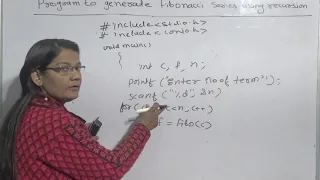 Program to generate Fibonacci Series using recursion
#include<stdio.h>
#include<conio.h>
void main()
{
int c, f, n;
printf("Enter no of term");
scanf("%d", &n)
for( <n; c++)
f = fibo(c)